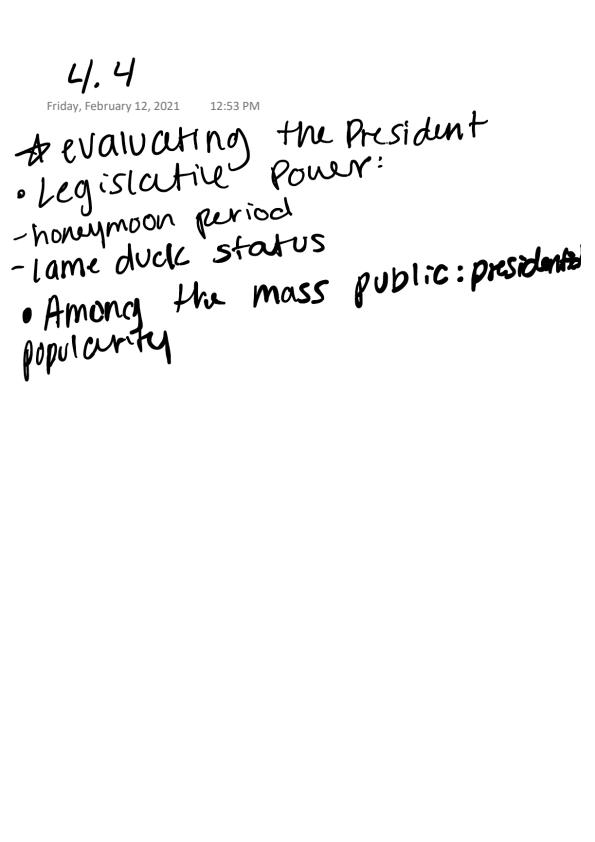 4.4
Friday, February 12, 2021 12:53 PM
☆ evaluating the President
• Legislative Power:
- honeymoon period
- lame duck status
• Among the mass public: presidential
popularity